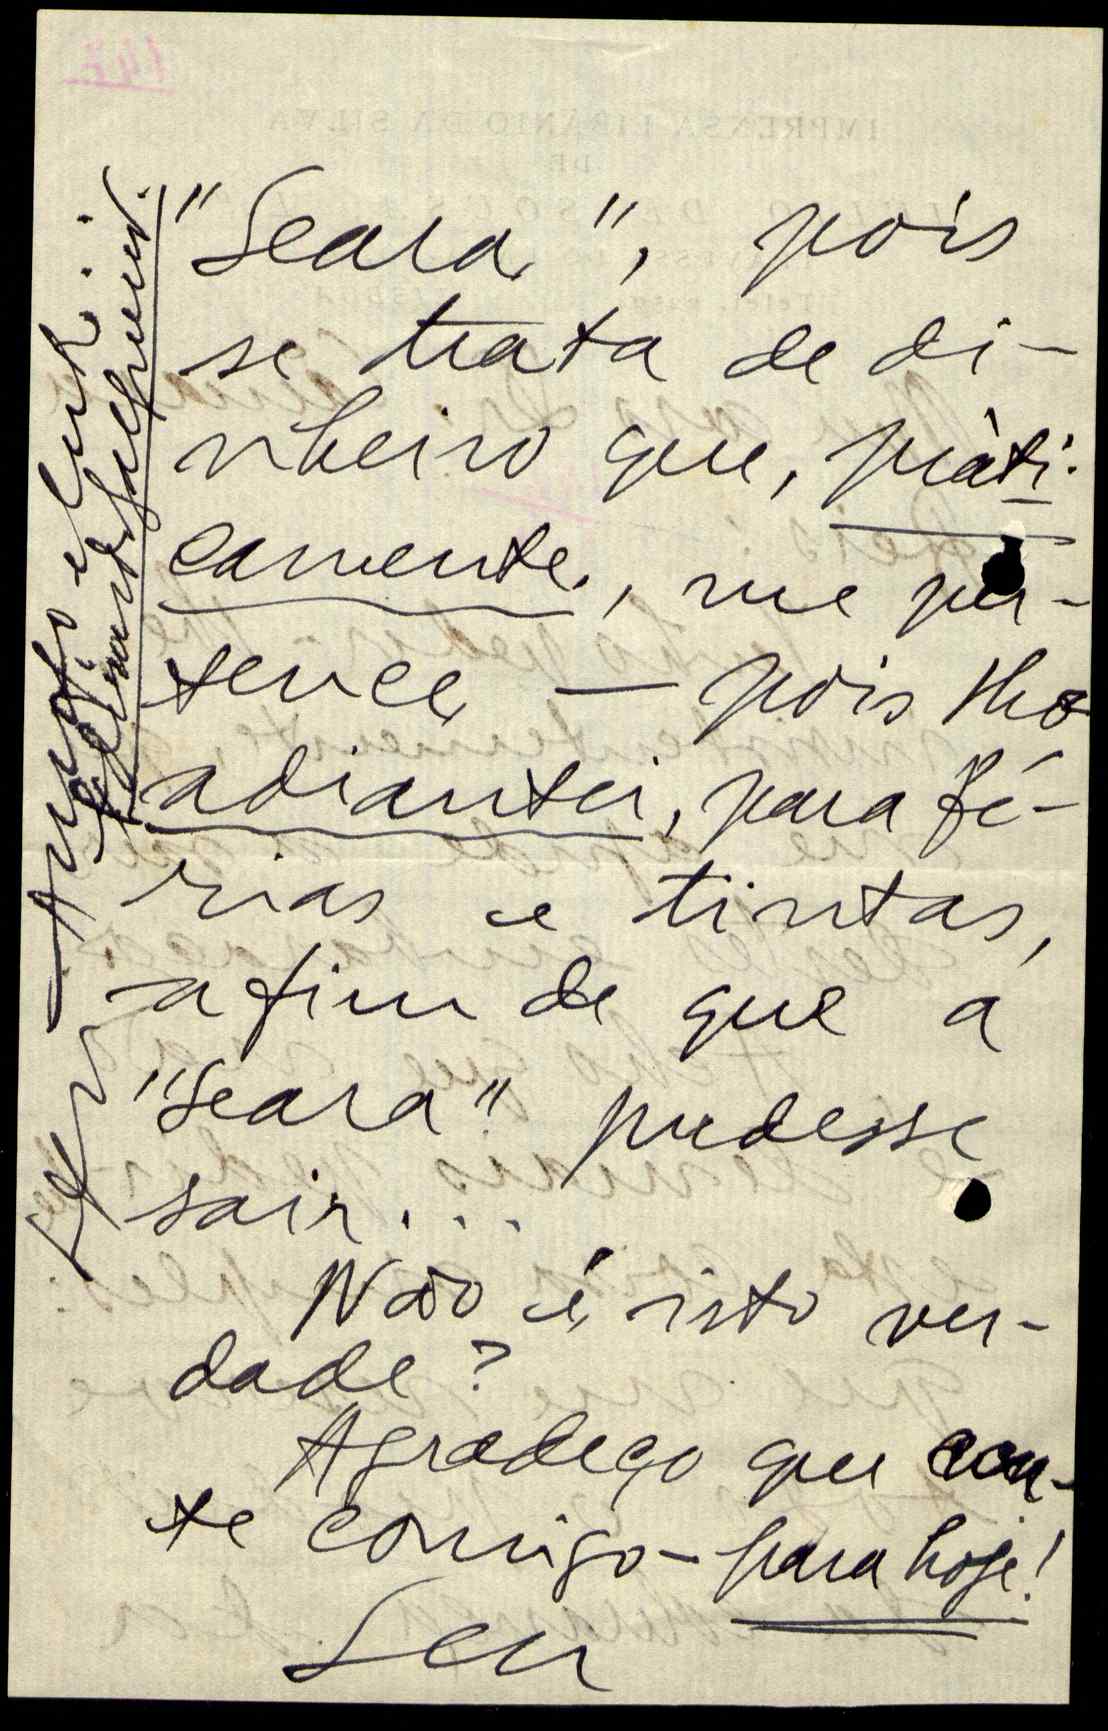 "Seara", pois
se trata de di-
nheiro que, pràti-
camente, me per-
tence, — pois lho
adiantei, para fé-
rias e tintas,
a fim de que a
"Seara" pudesse
sair...
Não é isto ver-
dade?
Agradeço que con-
te comigo — para hoje!
Seu
Seu Amigo e